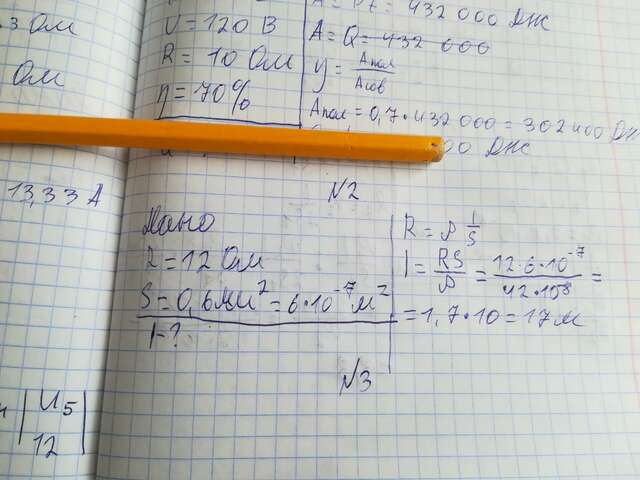 з Ом
Ом
13,33 А
U5
12
U = 120 В
R = 10 Ом
η = 70%
432 000 Дж
A = Q = 432 000
η = Aпол / Aсов
Aпол = 0,7 • 432 000 = 302400 Дж
00 Дж
№2
Дано
R = 12 Ом
S = 0,6 мм² = 6•10⁻⁷ м²
l - ?
R = ρ l/S
l = RS/ρ = 12•6•10⁻⁷ / 42•10⁸ =
= 1,7•10 = 17 м
№3